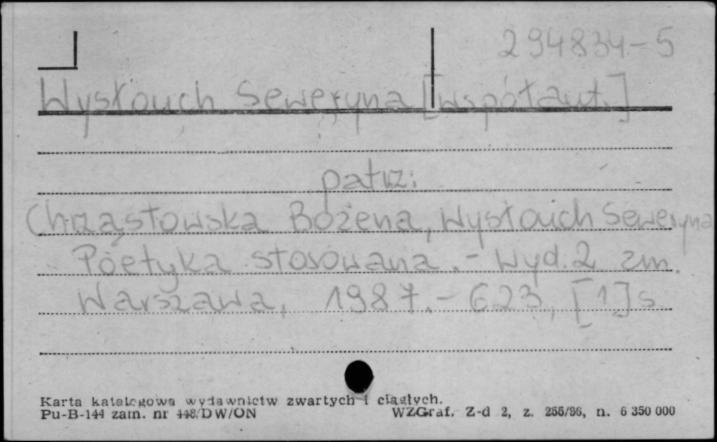 294834-5
Wysłouch Seweryna [współaut.]
patrz:
Chrząstowska Bożena, Wysłouch Seweryna
Poetyka stosowana. - Wyd. 2 zm.
Warszawa, 1987. - 623, [1] s.
Karta katalogowa wydawnictw zwartych i ciągłych.
Pu-B-144 zam. nr 448/DW/ON WZGraf. Z-d 2, z. 266/86, n. 6 350 000